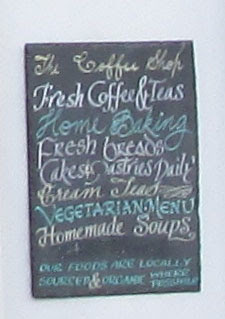 The Coffee Shop
Fresh Coffee & Teas
Home Baking
Fresh breads
Cakes & Pastries Daily
Cream Teas
VEGETARIAN MENU
Homemade Soups
OUR FOODS ARE LOCALLY
SOURCED & ORGANIC WHERE
POSSIBLE